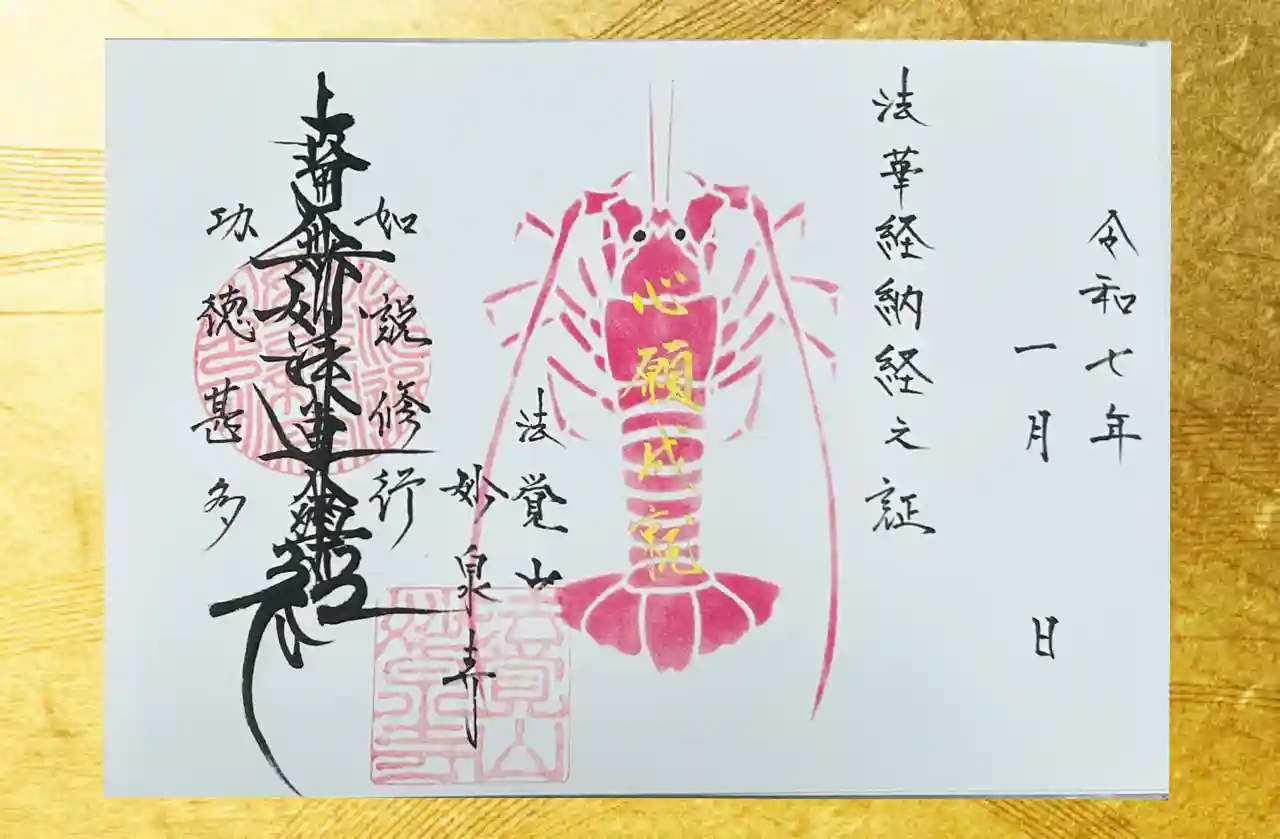 令和七年
一月 日
法華経納経之証
心願成就
法覚山
妙泉寺
法覚山
妙泉寺
如説修行
南無妙法蓮華經
功徳甚多